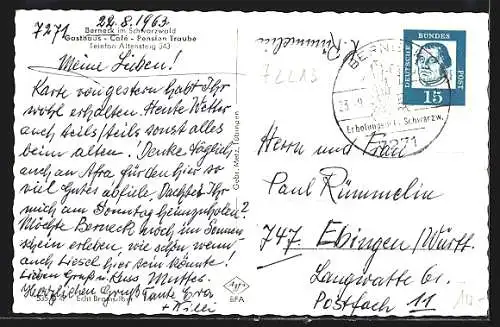 7271 22.8.1963
Berneck im Schwarzwald
Gasthaus - Café - Pension Traube
Telefon Altensteig 343
Meine Lieben!
Karte von gestern habt Ihr
wohl erhalten. Heute Wetter
auch teils/teils sonst alles
beim alten! Denke täglich
auch an Afra für den hier so
viel Gutes abfiele. Dachtet Ihr
mich am Sonntag heimzuholen?
Möchte Berneck noch im Sonnen
schein erleben, wie schön wenn
auch Liesel hier sein könnte!
Lieben Gruß u. Kuss Mutter.
Herzlichen Gruß Tante
+ Willi
Gebr. Metz, Tübingen
Echt Bromsilber
EFA
R. Rümmelin
BERNECK
Erholungsort i. Schwarzw.
7271
DEUTSCHE BUNDESPOST
15
Herrn und Frau
Paul Rümmelin
747 Ebingen/Württ.
Langwatte 61
Postfach 11
10.-